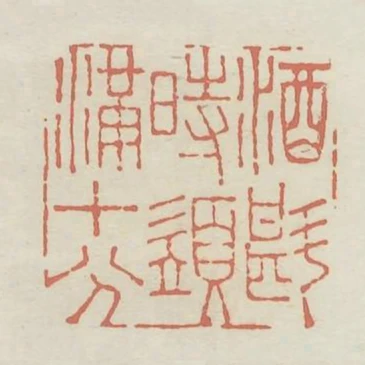 酒斟
時須
滿十分